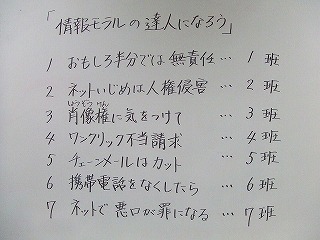 「情報モラルの達人になろう」
1 おもしろ半分では無責任… 1 班
2 ネットいじめは人権侵害… 2 班
しょうぞうけん
3 肖像権に気をつけて … 3 班
4 ワンクリック不当請求 … 4 班
5 チェーンメールはカット … 5 班
6 携帯電話をなくしたら … 6 班
7 ネットで悪口が罪になる… 7 班